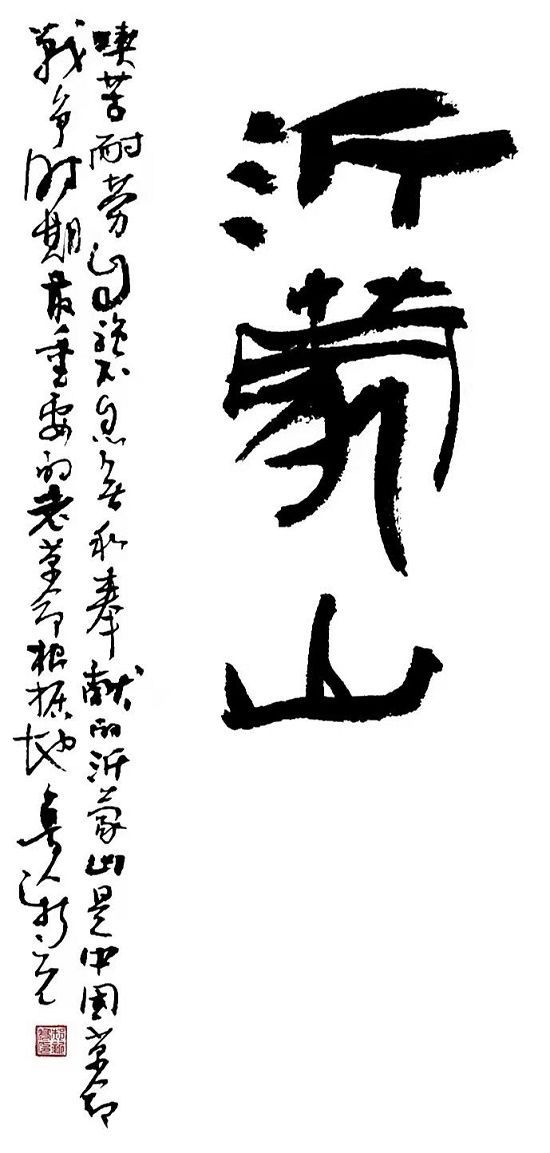 沂蒙山
喫苦耐劳自强不息无私奉献的沂蒙山是中国革命
战争时期最重要的老革命根据地